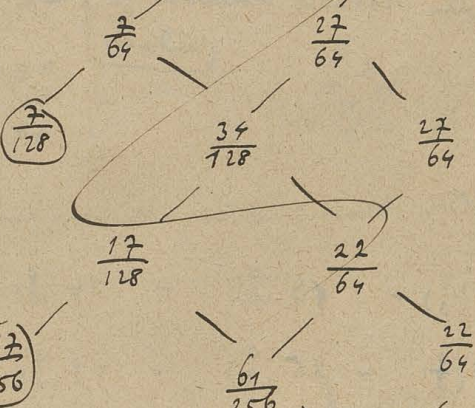 7/64 27/64
7/128 34/128 27/64
17/128 22/64
22/64
61/256